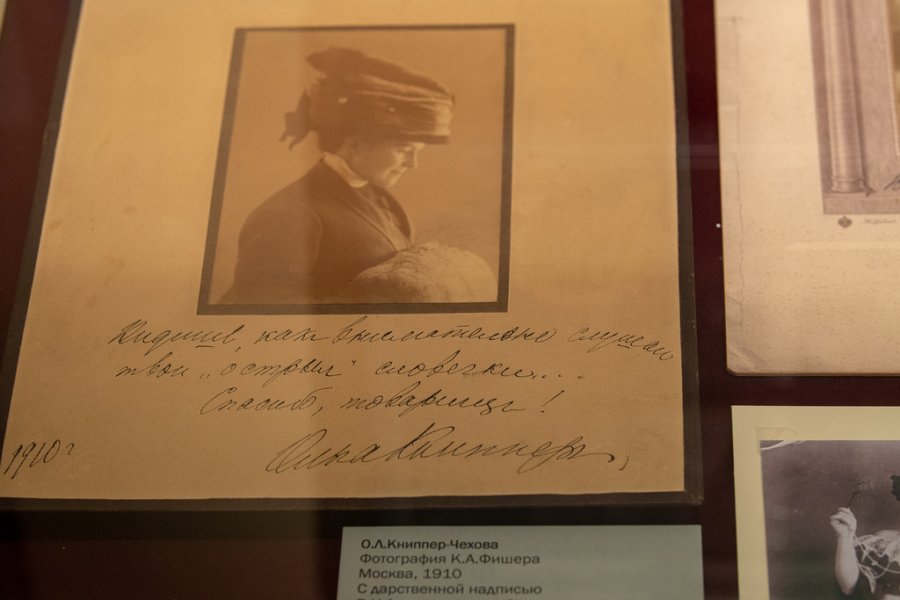 Видишь, какъ внимательно слушаю
твои „острыя" словечки....
Спасибо, товарищъ!
1910 г
Ольга Книпперъ
О.Л.Книппер-Чехова
Фотография К.А.Фишера
Москва, 1910
С дарственной надписью